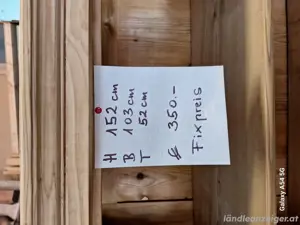 H 152 cm
B 103 cm
T 52 cm
€ 350.-
Fixpreis
Galaxy A54 5G
ländleanzeiger.at